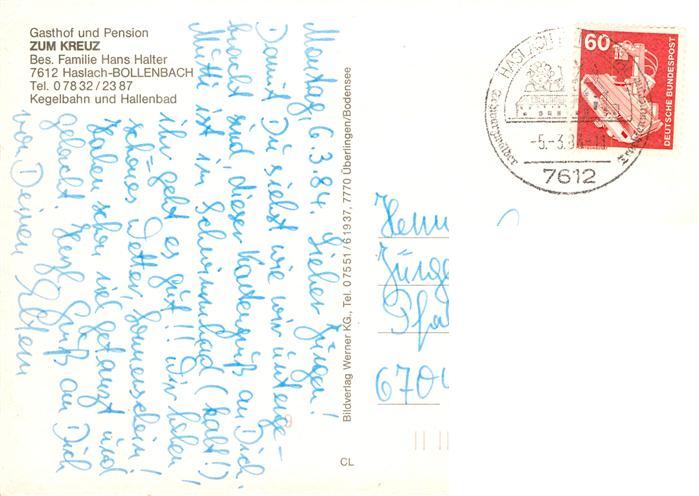 Gasthof und Pension
ZUM KREUZ
Bes. Familie Hans Halter
7612 Haslach-BOLLENBACH
Tel. 0 78 32 / 23 87
Kegelbahn und Hallenbad
Montag, 6.3.84. Lieber Jürgen!
Damit Du siehst wie wir unterge-
bracht sind, dieser Kartengruß an Dich.
Mutti ist im Schwimmbad (kalt!),
ihr geht es gut!! Wir haben
schönes Wetter, Sonnenschein!
Haben schon viel getanzt und
gelacht. Herzl. Gruß an Dich
von Deinen Eltern
Bildverlag Werner KG., Tel. 07551/61937, 7770 Überlingen/Bodensee
CL
60
DEUTSCHE BUNDESPOST
HASLACH
-5.-3.84-11
7612
Herrn
Jürge
Pfa
670